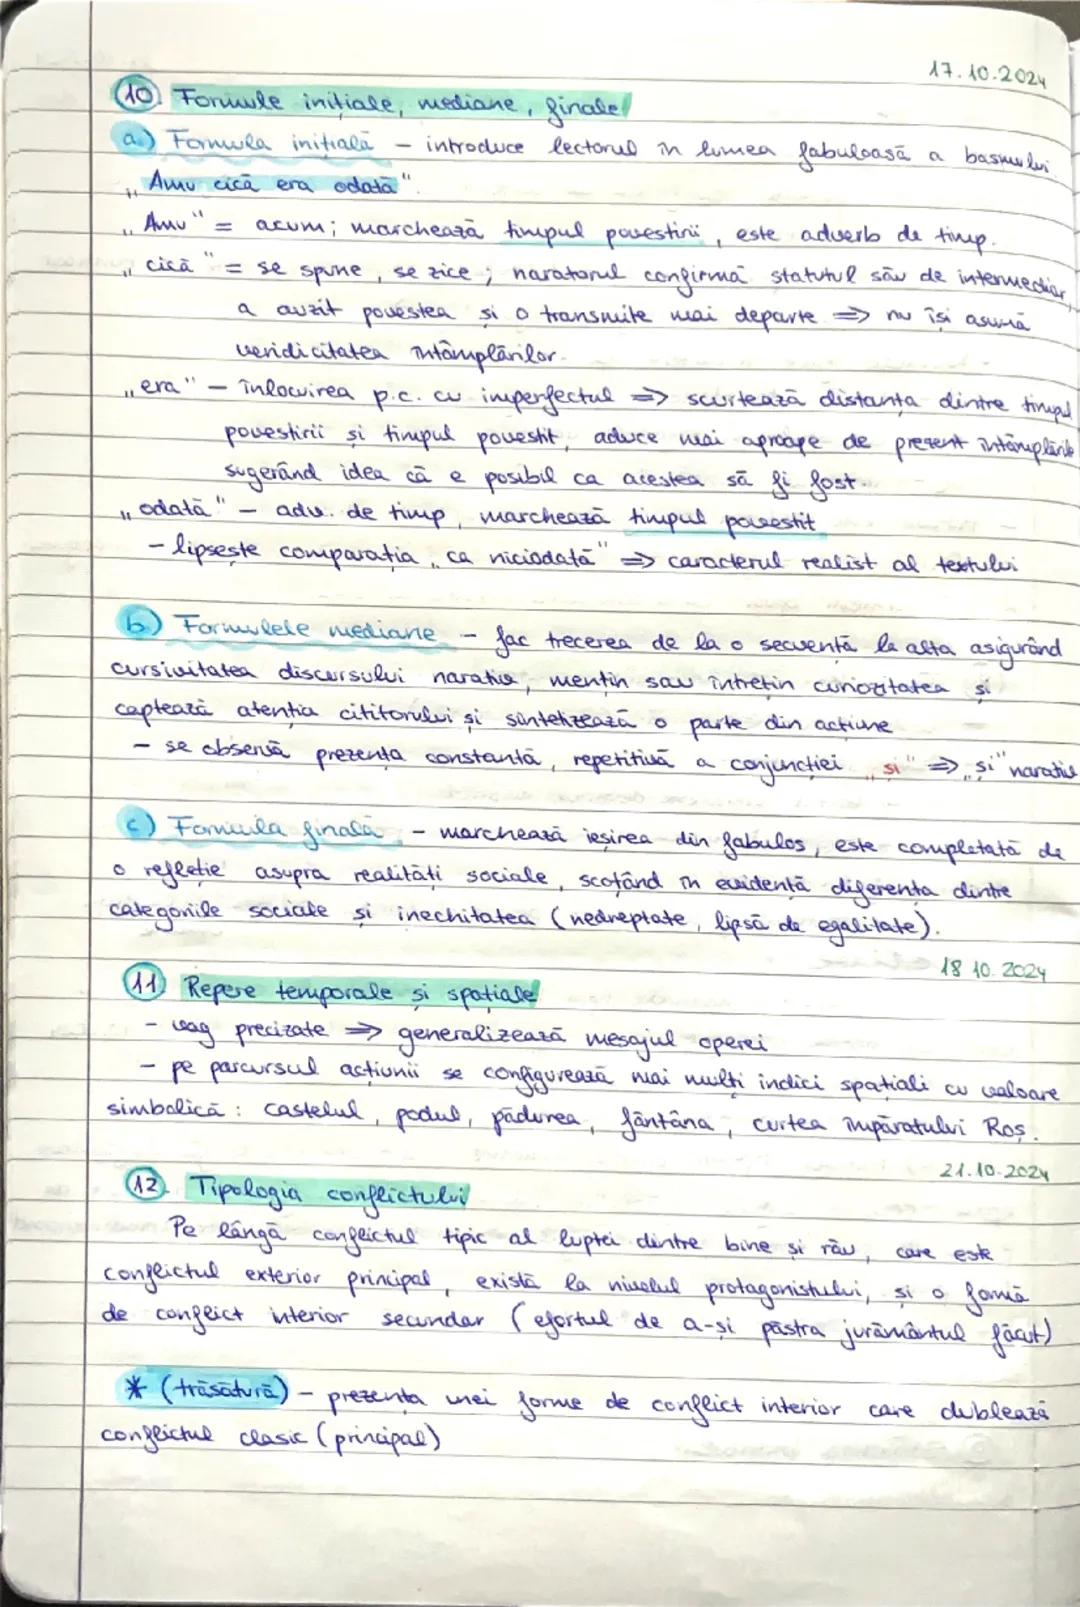 17.10.2024
10. Formule inițiale, mediane, finale
a.) Formula inițială – introduce lectorul în lumea fabuloasă a basmului
„Amu cică era odată".
„Amu" = acum; marchează timpul povestirii, este adverb de timp.
„cică" = se spune, se zice; naratorul confirmă statutul său de intermediar,
a auzit povestea și o transmite mai departe => nu își asumă
veridicitatea întâmplărilor.
„era" – înlocuirea p.c. cu imperfectul => scurtează distanța dintre timpul
povestirii și timpul povestit, aduce mai aproape de prezent întâmplările
sugerând ideea că e posibil ca acestea să fi fost.
„odată" – adv. de timp, marchează timpul povestit
– lipsește comparația „ca niciodată" => caracterul realist al textului
b.) Formulele mediane – fac trecerea de la o secvență la alta asigurând
cursivitatea discursului narativ, mențin sau întrețin curiozitatea și
captează atenția cititorului și sintetizează o parte din acțiune
– se observă prezența constantă, repetitivă a conjuncției „și" => „și" narativ
c) Formula finală, – marchează ieșirea din fabulos, este completată de
o reflecție asupra realității sociale, scoțând în evidență diferența dintre
categoriile sociale și inechitatea (nedreptate, lipsă de egalitate).
18.10.2024
11) Repere temporale și spațiale
– vag precizate => generalizează mesajul operei
– pe parcursul acțiunii se configurează mai mulți indici spațiali cu valoare
simbolică: castelul, podul, pădurea, fântâna, curtea împăratului Roș.
21.10.2024
12. Tipologia conflictului
Pe lângă conflictul tipic al luptei dintre bine și rău, care este
conflictul exterior principal, există la nivelul protagonistului, și o formă
de conflict interior secundar (efortul de a-și păstra jurământul făcut)
* (trăsătură) – prezența unei forme de conflict interior care dublează
conflictul clasic (principal)